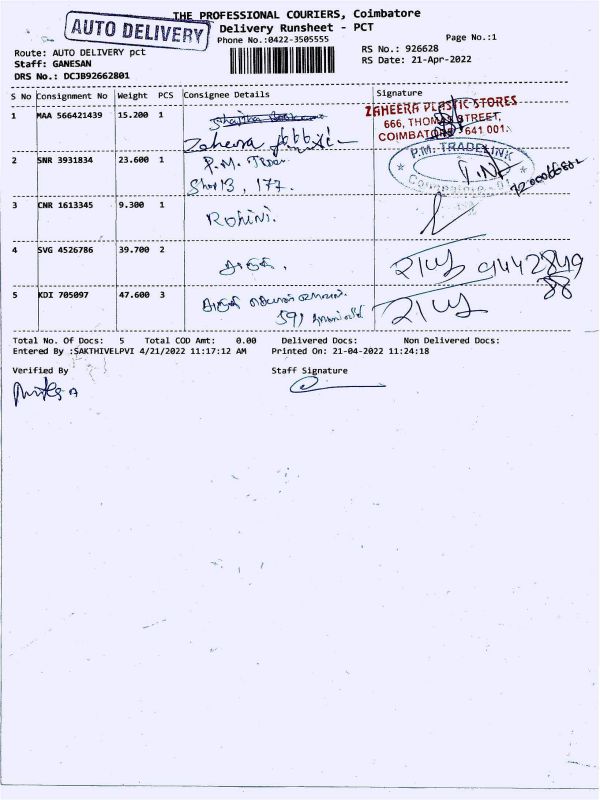 THE PROFESSIONAL COURIERS, Coimbatore
AUTO DELIVERY
Delivery Runsheet - PCT
Phone No.:0422-3505555
Page No.:1
Route: AUTO DELIVERY pct
RS No.: 926628
Staff: GANESAN
RS Date: 21-Apr-2022
DRS No.: DCJB92662801
S No Consignment No Weight PCS Consignee Details Signature
1 MAA 566421439 15.200 1
Zaheera 666
ZAHEERA PLASTIC STORES
666, THOMAS STREET,
COIMBATORE 641 001.
2 SNR 3931834 23.600 1 P.M. Trade
Shop 13, 177.
P.M. TRADELINK
3 CNR 1613345 9.300 1
Rohini.
4 SVG 4526786 39.700 2
9442849
88
5 KDI 705097 47.600 3
591
Total No. Of Docs: 5 Total COD Amt: 0.00 Delivered Docs: Non Delivered Docs:
Entered By :SAKTHIVELPVI 4/21/2022 11:17:12 AM Printed On: 21-04-2022 11:24:18
Verified By Staff Signature